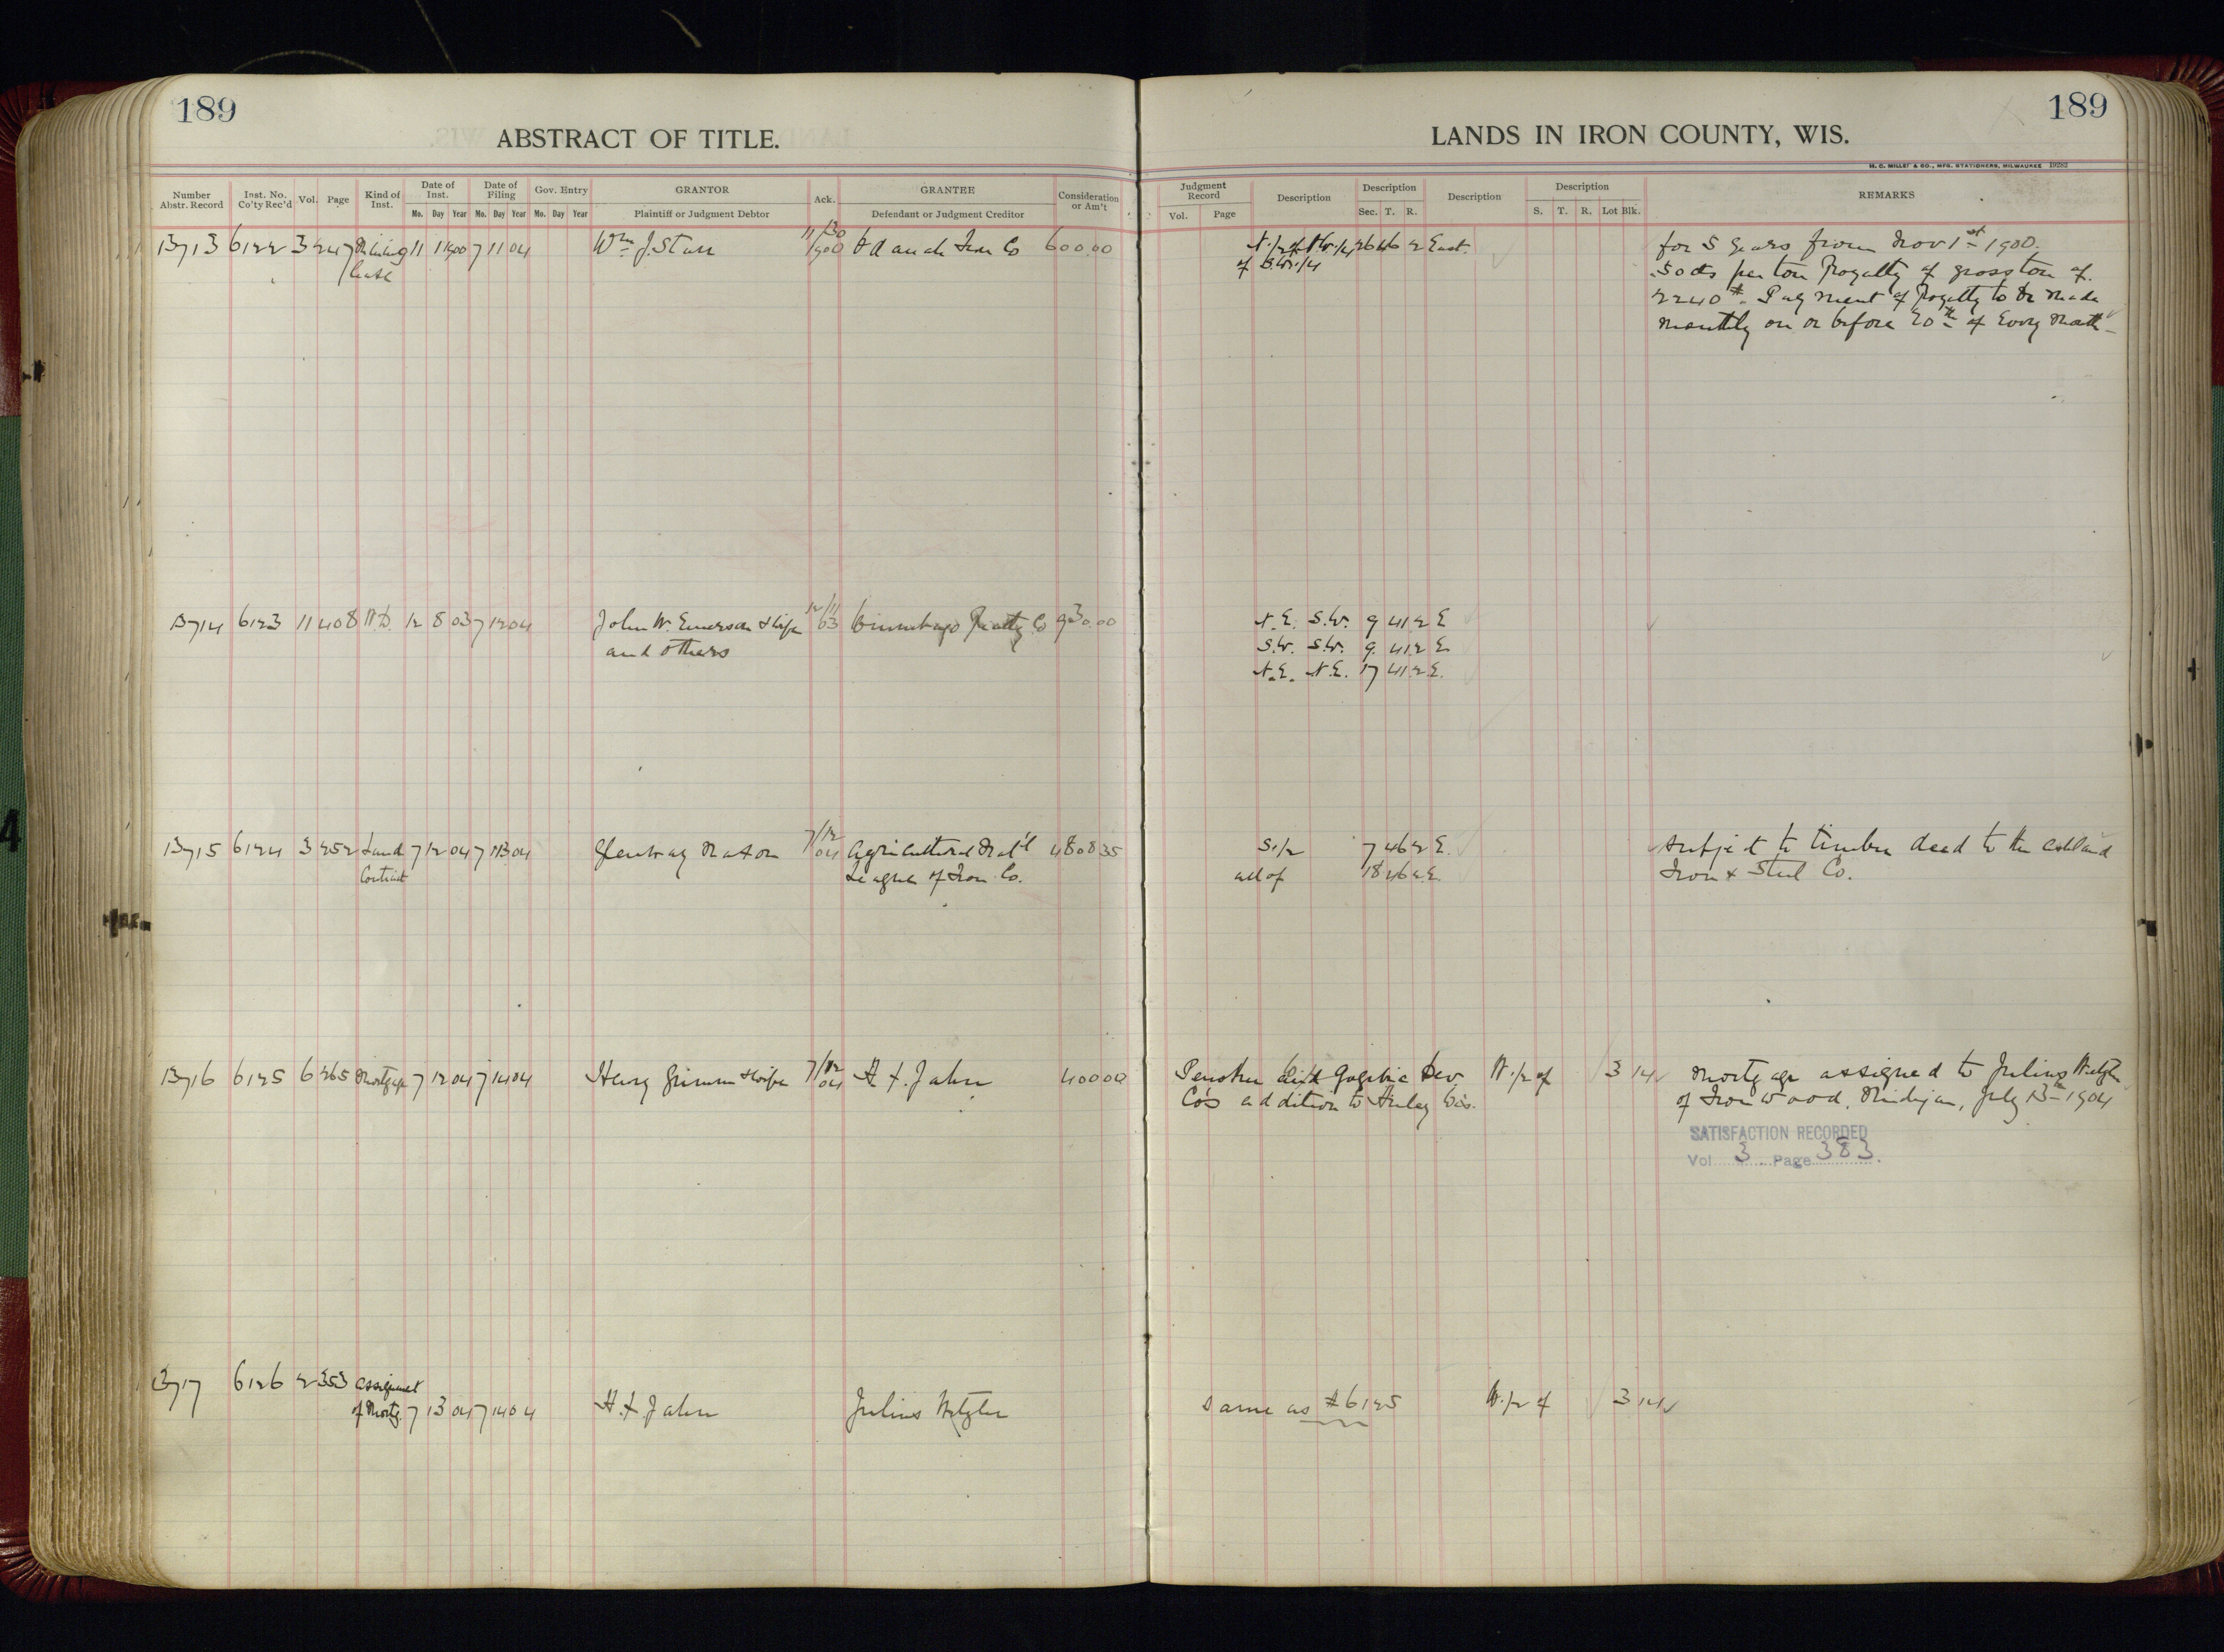 189
ABSTRACT OF TITLE.
Number Abstr. Record
Inst. No. Co'ty Rec'd
Vol.
Page
Kind of Inst.
Date of Inst.
Mo. Day Year
Date of Filing
Mo. Day Year
Gov. Entry
Mo. Day Year
GRANTOR
Plaintiff or Judgment Debtor
Ack.
GRANTEE
Defendant or Judgment Creditor
Consideration or Am't
13713 6122 3 247 Mining 11 1 1900 7 11 04 Wm J. Starr 11/30 1900 Iron Co 600.00
lease
13714 6123 11 408 W.D. 12 8 03 7 12 04 John W. Emerson & wife 12/11 03 Winnebago Realty Co 930.00
and others
13715 6124 3 252 Land 7 12 04 7 13 04 Glenway Maxon 7/12 04 Agricultural Mat'l 4808 35
Contract League of Iron Co.
13716 6125 6 265 Mortgage 7 12 04 7 14 04 Henry Grimm & wife 7/12 04 H. F. Jahn 400 00
13717 6126 2 353 assignment
of Mortg. 7 13 04 7 14 04 H. F. Jahn Julius
189
LANDS IN IRON COUNTY, WIS.
H. C. MILLER & CO., MFG. STATIONERS, MILWAUKEE 19282
Judgment Record
Vol. Page
Description
Description
Sec. T. R.
Description
Description
S. T. R. Lot Blk.
REMARKS
N.1/2 of N.W.1/4 26 46 2 East. for 5 years from Nov 1st 1900.
of S.W.1/4 .50 cts per ton Royalty of gross ton of
2240 #. Payment of Royalty to be made
monthly on or before 20th of Every Month
N.E. S.W. 9 41 2 E
S.W. S.W. 9. 41 2 E.
N.E. N.E. 17 41 2 E.
S.1/2 7 46 2 E. subject to timber deed to the Ashland
all of 18 46 2 E. Iron & Steel Co.
Penokee and Gogebic Dev W.1/2 of 3 14 Mortgage assigned to Julius
Co's addition to Hurley Wis. of Ironwood, Michigan, July 13th 1904
SATISFACTION RECORDED
Vol 3. Page 383.
Same as #6125 W.1/2 of 3 14